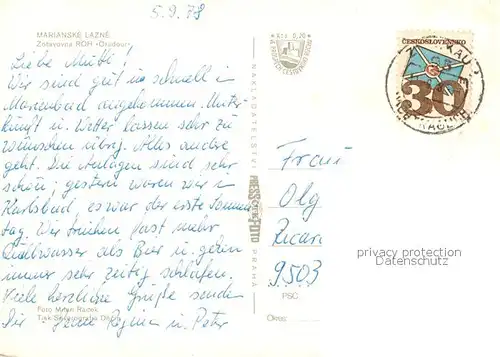 5.9.78
MARIÁNSKÉ LÁZNĚ
Zotavovna ROH »Osobor«
Liebe Mutti!
Wir sind gut u. schnell in
Marienbad angekommen. Unter-
kunft u. Wetter lassen sehr zu
wünschen übrig. Alles andere
geht. Die Anlagen sind sehr
schön; gestern waren wir in
Karlsbad, es war der erste Sonnen-
tag. Wir trinken fast mehr
Quellwasser als Bier u. gehen
immer sehr zeitig schlafen.
Viele herzliche Grüße senden
Dir Regina u. Peter
Foto Milan Radek
Tisk Severografia Děčín
NAKLADATELSTVÍ
PRESSFOTO
PRAHA
Kčs 0,20
ČESKOSLOVENSKO
30
Frau
Olg
Ricar
9503
PSČ
Okres
privacy protection
Datenschutz